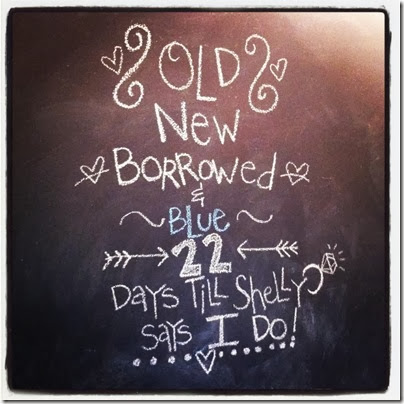 OLD
New
BORROWed
&
BLUe
22
DAYs Till Shelly
says I Do!